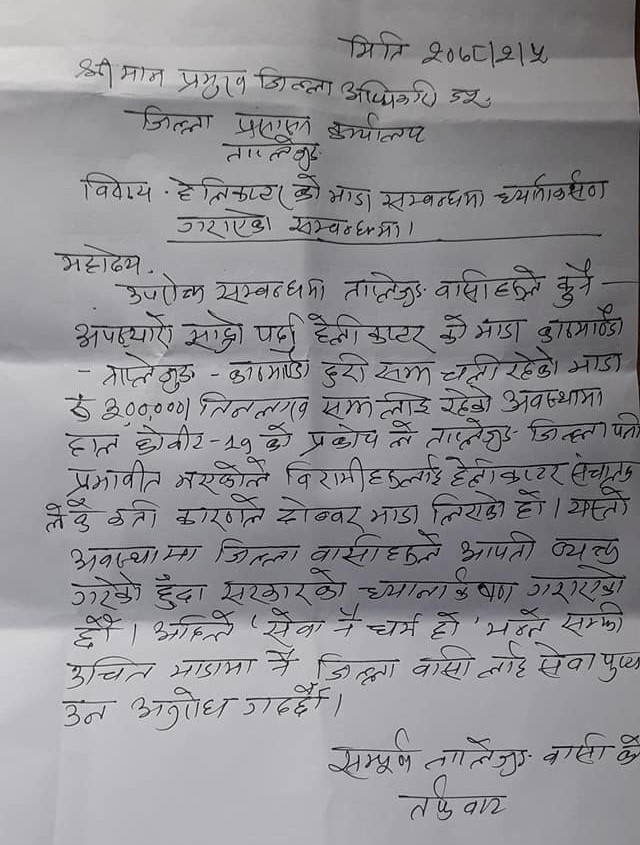 मिति २०७८/२/५
श्रीमान प्रमुख जिल्ला अधिकारी ज्यू
जिल्ला प्रशासन कार्यालय
ताप्लेजुङ
विषय - हेलिकप्टर को भाडा सम्बन्धमा ध्यानाकर्षण
गराएको सम्बन्धमा।
महोदय,
उपरोक्त सम्बन्धमा ताप्लेजुङ वासीहरुले कुनै
अपठ्यारो साह्रो पर्दा हेलीकाप्टर को भाडा काठमाण्डौ
- ताप्लेजुङ - काठमाण्डौ दुरी सम्म चली रहेको भाडा
रु ३००,०००। तिनलाख सम्म लाई रहेको अवस्थामा
हाल कोवीड-१९ को प्रकोप ले ताप्लेजुङ जिल्ला पनी
प्रभावीत भएकोले विरामीहरुलाई हेलीकाप्टर संचालक
ले के कती कारणले दोब्बर भाडा लिएको हो। यस्तो
अवस्थामा जिल्ला वासीहरुले आपती व्यक्त
गरेको हुँदा सरकारको ध्यानाकर्षण गराएको
छौँ। अहिले 'सेवा नै धर्म हो' भन्ने सम्झी
उचित भाडामा नै जिल्ला वासी लाई सेवा पुर्‍या
उन अनुरोध गर्दछौँ।
सम्पूर्ण ताप्लेजुङ वासी को
तर्फ वाट